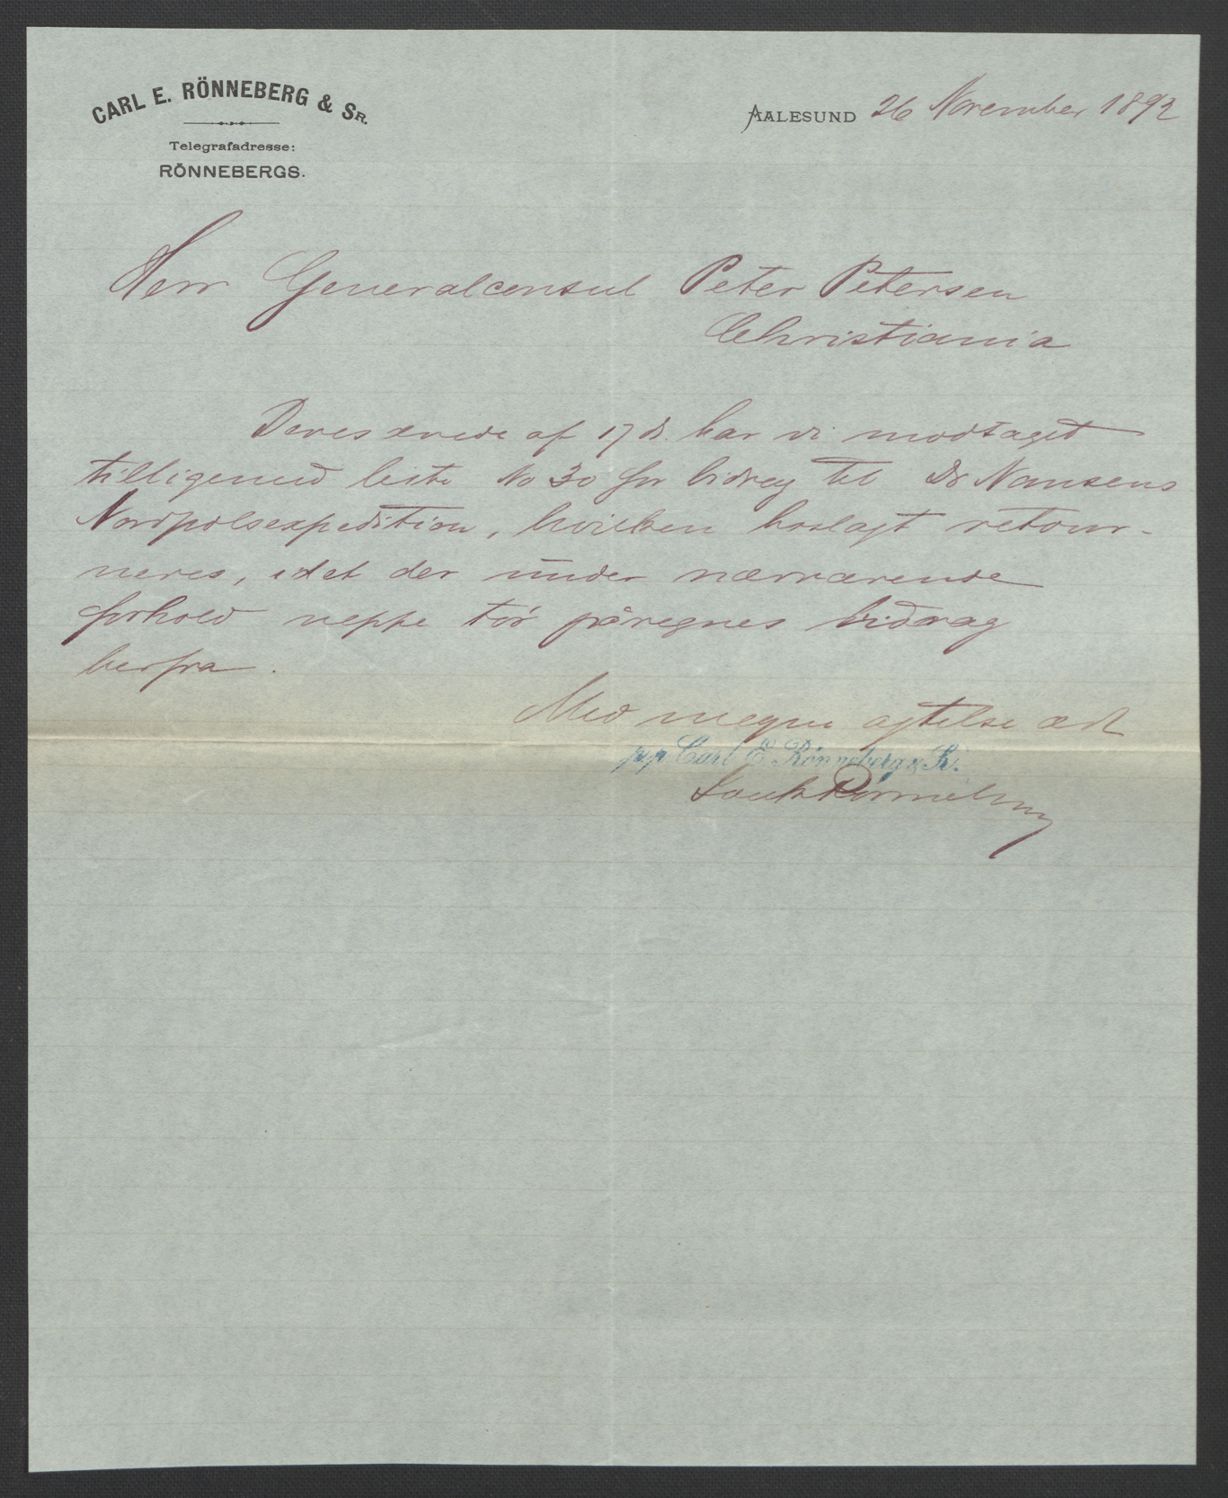 CARL E. RÖNNEBERG & SR.
Telegrafadresse:
RÖNNEBERGS.
AALESUND 26 November 1892
Herr Generalconsul Peter Petersen
Christiania
Deres ærede af 17 ds. har vi modtaget
tilligemed liste No 30 for bidrag til Dr Nansens
Nordpolsexpedition, hvilken hoslagt retour-
neres, idet der under nærværende
forhold neppe tör påregnes bidrag
herfra.
Med megen agtelse ærb
pp. Carl E. Rönneberg & Sr.
Rönneberg